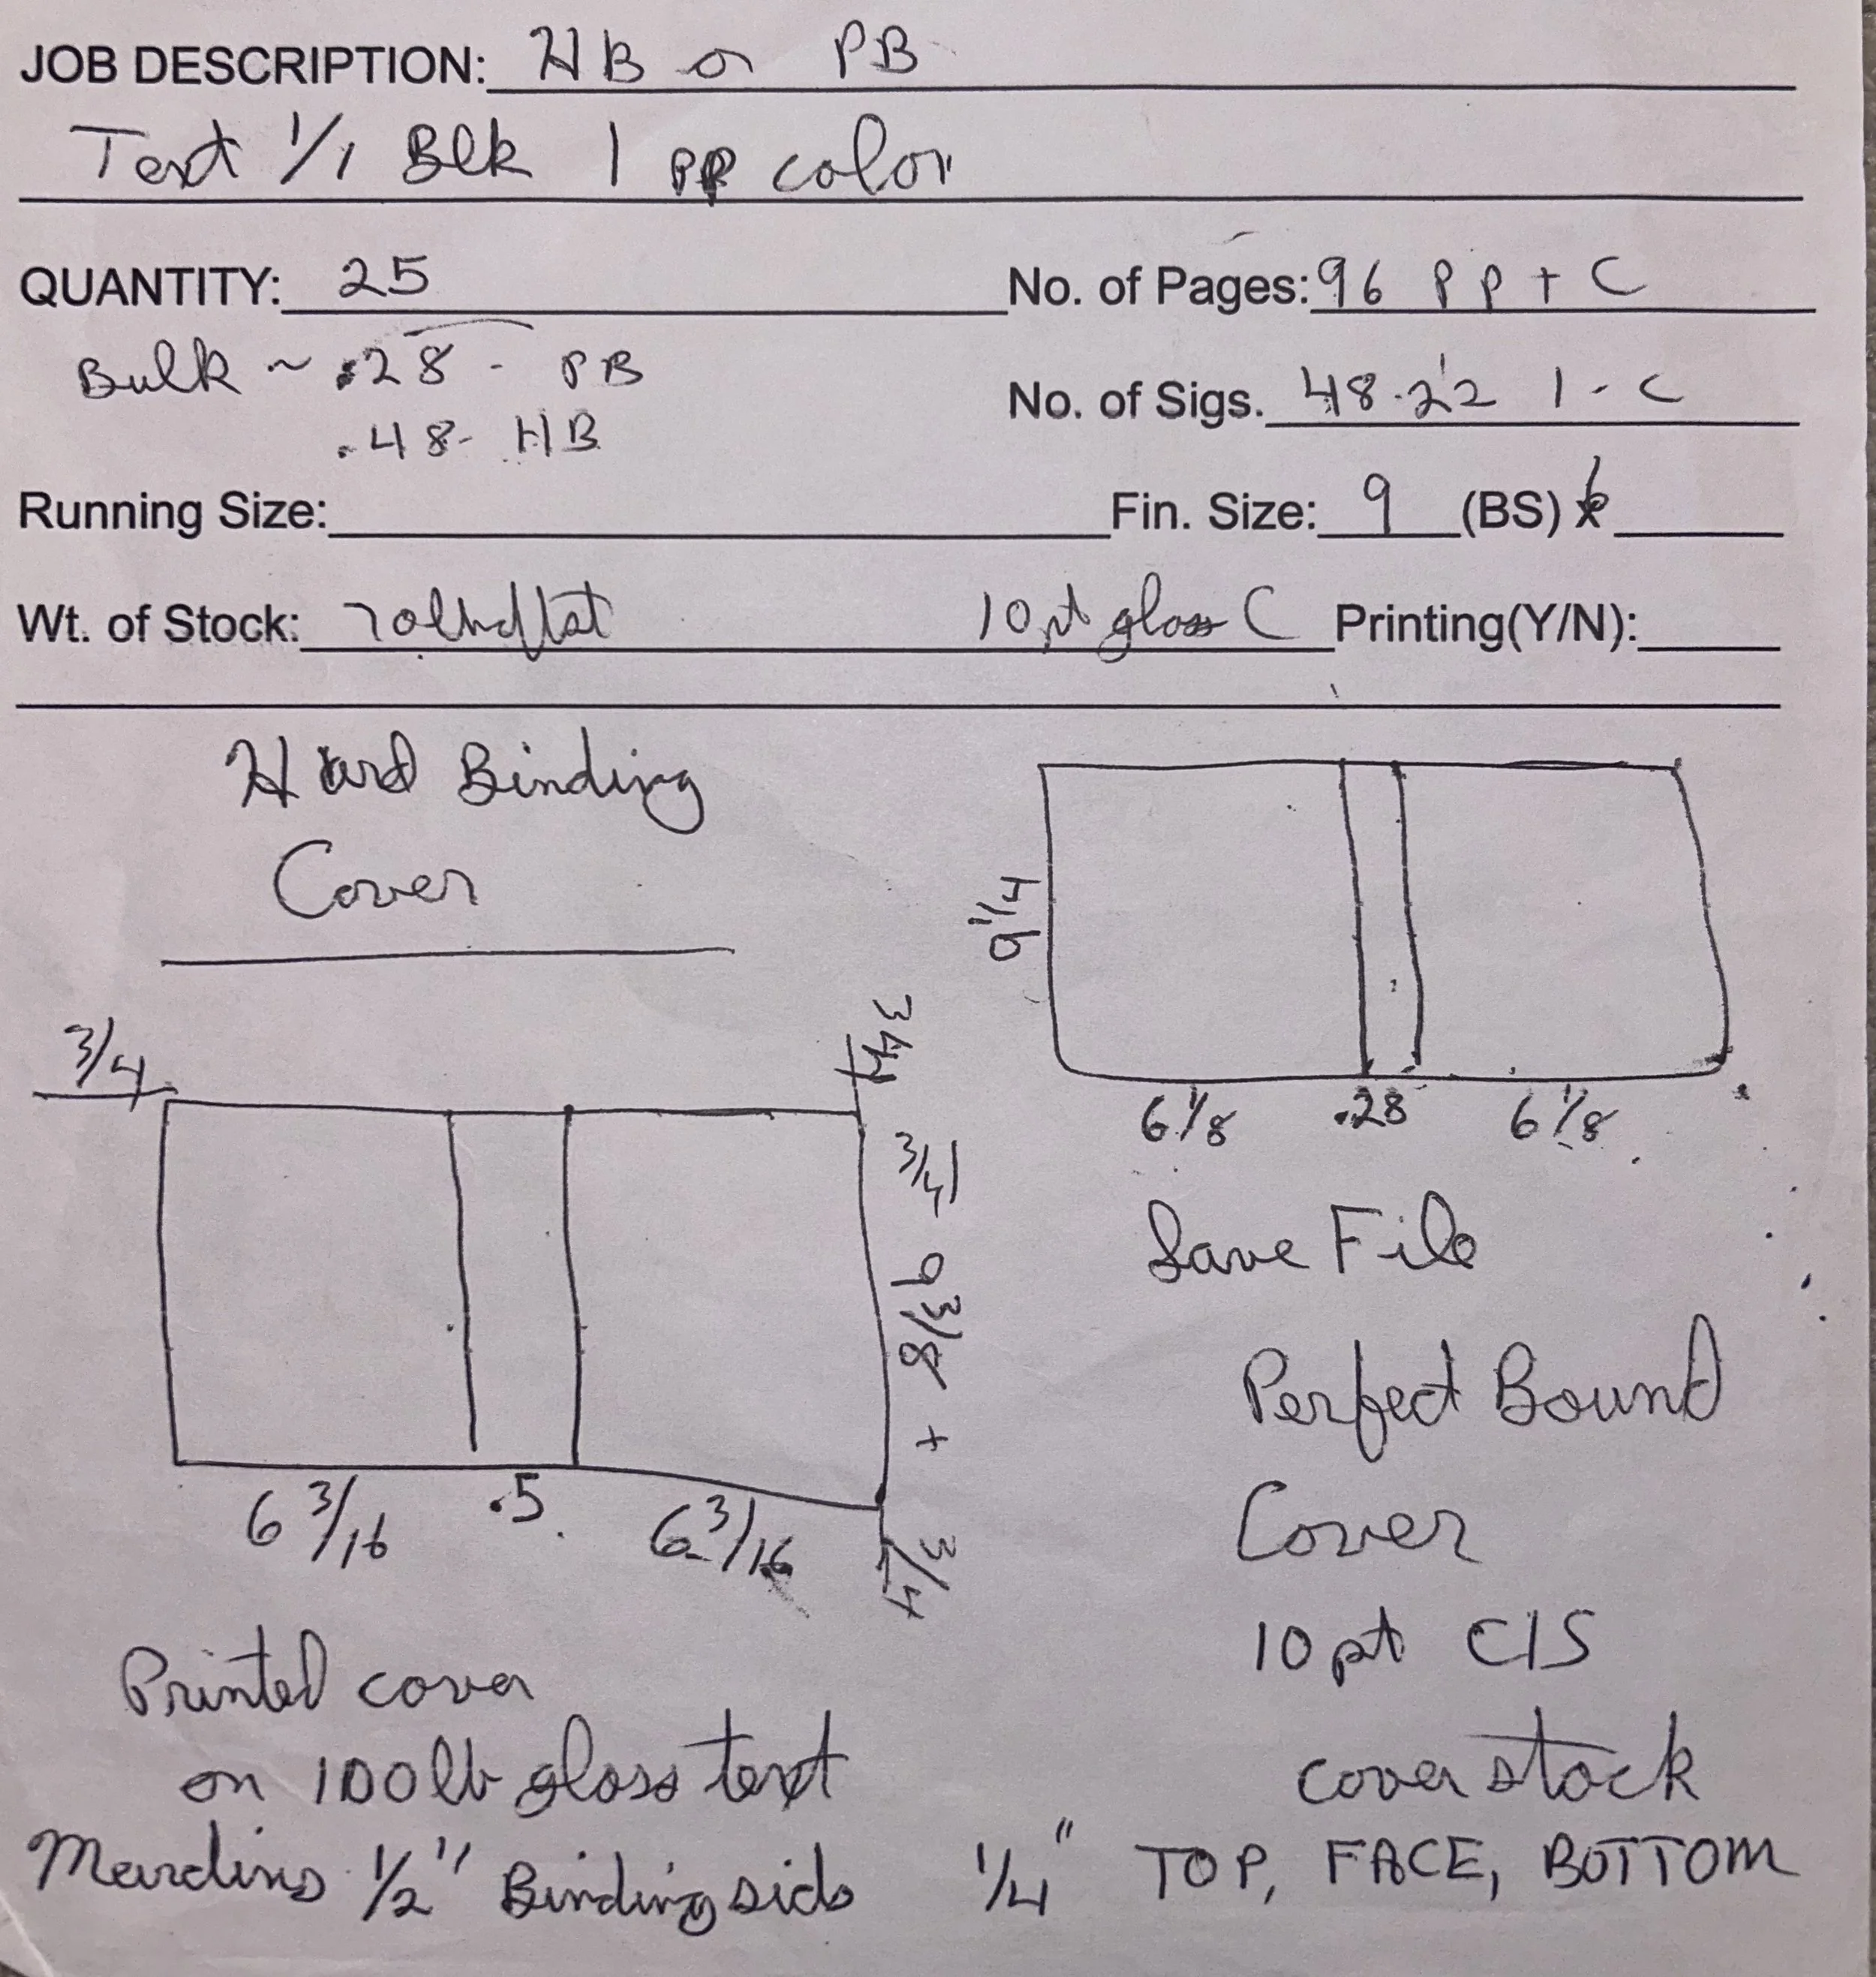 JOB DESCRIPTION: HB or PB
Text 1/1 Blk 1 pp color
QUANTITY: 25 No. of Pages: 96 pp + C
Bulk ~ .28 - PB No. of Sigs. 48-2's 1-C
.48 - HB
Running Size: Fin. Size: 9 (BS) 6
Wt. of Stock: 70lb 10pt gloss C Printing(Y/N):
Hard Binding
Cover
9 1/4
6 1/8 .28 6 1/8
3/4
3/4
3/4 9 3/8 +
3/4
6 3/16 .5 6 3/16
Save File
Perfect Bound
Cover
10 pt C1S
cover stock
Printed cover
on 100lb gloss text
Margins 1/2" Binding side 1/4" TOP, FACE, BOTTOM